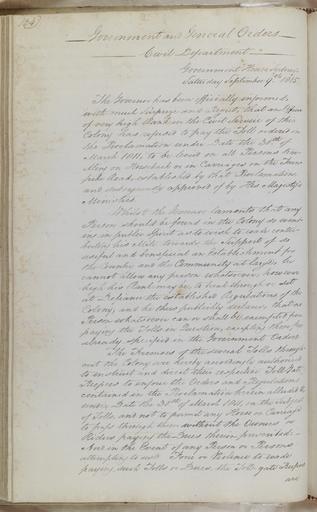 Government and General Orders
Civil Department
Government House Sydney
Saturday September 9th 1815
The Governor has been officially informed,
with much Surprise and Regret, that an Officer
of very high Rank in the Civil Service of this
Colony has refused to pay the Toll ordered in
the Proclamation under Date the 30th of
March 1811, to be levied on all Persons tra-
velling on Horseback or in Carriages on the Turn-
pike Road, established by that Proclamation,
and subsequently approved of by His Majesty's
Ministers.
Whilst the Governor laments that any
Person should be found in the Colony so want-
ing in public Spirit as to wish to evade contri-
buting his Mite towards the Support of so
useful and beneficial an Establishment for
the Country and the Community at large; he
cannot allow any person whatsoever, however
high his Rank may be, to break through or set
at Defiance the established Regulations of the
Colony, and he thus publickly declares that no
Person whatsoever can or shall be exempt from
paying the Tolls in Question, excepting those
already specified in the Government Orders
The of the several Tolls through-
out the Colony are hereby accordingly authorised
to instruct and direct their respective Toll Gate
Keepers to enforce the Orders and Regulations
contained in the Proclamation herein alluded to
under Date the 30th of March 1811, on the subject
of Tolls, and not to permit any Horse or Carriage
to pass through them without the Owners or
Riders paying the Dues therein
And in the Event of any Person or Persons
attempting to use Force or Violence to evade
paying such Tolls or Dues, the Toll gate Keepers
are